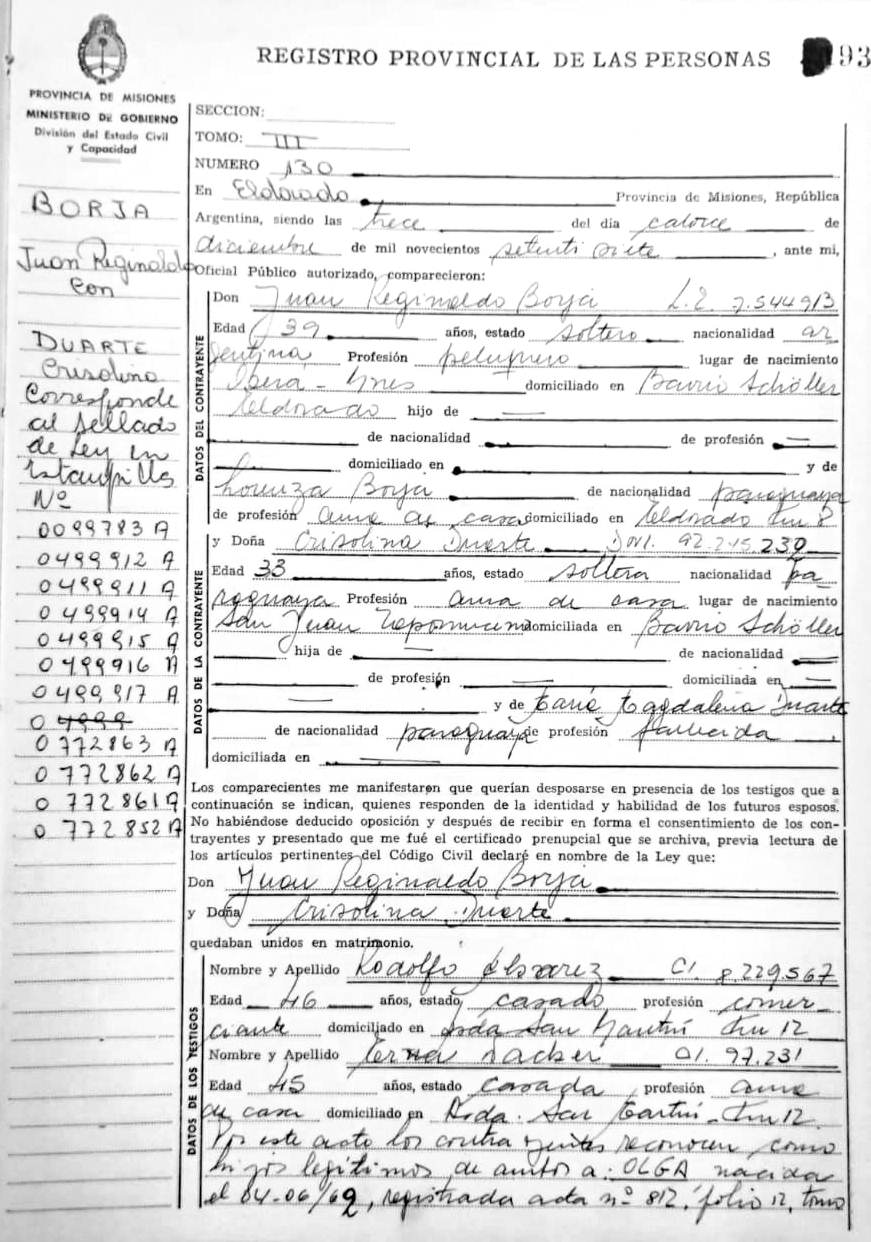 REGISTRO PROVINCIAL DE LAS PERSONAS 93
PROVINCIA DE MISIONES
MINISTERIO DE GOBIERNO
División del Estado Civil
y Capacidad
BORJA
Juan Reginaldo
con
DUARTE
Crisolina
Corresponde
al sellado
de Ley en
Estampillas
Nº
0099783 A
0499912 A
0499911 A
0499914 A
0499915 A
0499916 A
0499917 A
0 4999
0772863 A
0772862 A
0772861 A
0772852 A
SECCION:
TOMO: III
NUMERO 130
En Eldorado Provincia de Misiones, República
Argentina, siendo las trece del día catorce de
diciembre de mil novecientos setenti siete, ante mi,
Oficial Público autorizado, comparecieron:
DATOS DEL CONTRAYENTE
Don Juan Reginaldo Borja L.E. 7.544.913
Edad 39 años, estado soltero nacionalidad ar
gentina Profesión peluquero lugar de nacimiento
Oberá - Mnes domiciliado en Barrio Schöller
Eldorado hijo de —
de nacionalidad de profesión —
domiciliado en y de
Lorenza Borja de nacionalidad paraguaya
de profesión ama de casa domiciliado en Eldorado Km 8
DATOS DE LA CONTRAYENTE
y Doña Crisolina Duarte D.N.I. 92.215.230
Edad 33 años, estado soltera nacionalidad pa
raguaya Profesión ama de casa lugar de nacimiento
San Juan Nepomuceno domiciliada en Barrio Schöller
hija de — de nacionalidad —
de profesión — domiciliada en —
— y de María Magdalena Duarte
de nacionalidad paraguaya de profesión fallecida,
domiciliada en —
Los comparecientes me manifestaron que querían desposarse en presencia de los testigos que a
continuación se indican, quienes responden de la identidad y habilidad de los futuros esposos.
No habiéndose deducido oposición y después de recibir en forma el consentimiento de los con-
trayentes y presentado que me fué el certificado prenupcial que se archiva, previa lectura de
los artículos pertinentes del Código Civil declaré en nombre de la Ley que:
Don Juan Reginaldo Borja
y Doña Crisolina Duarte
quedaban unidos en matrimonio.
DATOS DE LOS TESTIGOS
Nombre y Apellido Rodolfo Alvarez CI. 8.229.567
Edad 46 años, estado casado profesión comer-
ciante domiciliado en Avda San Martín Km 12
Nombre y Apellido Erna CI. 97.231
Edad 45 años, estado casada profesión ama
de casa domiciliado en Avda. San Martín - Km 12.
Por este acto los contrayentes reconocen como
hijos legítimos de ambos a: OLGA nacida
el 04-06/69, registrada acta nº 812, folio 12, tomo